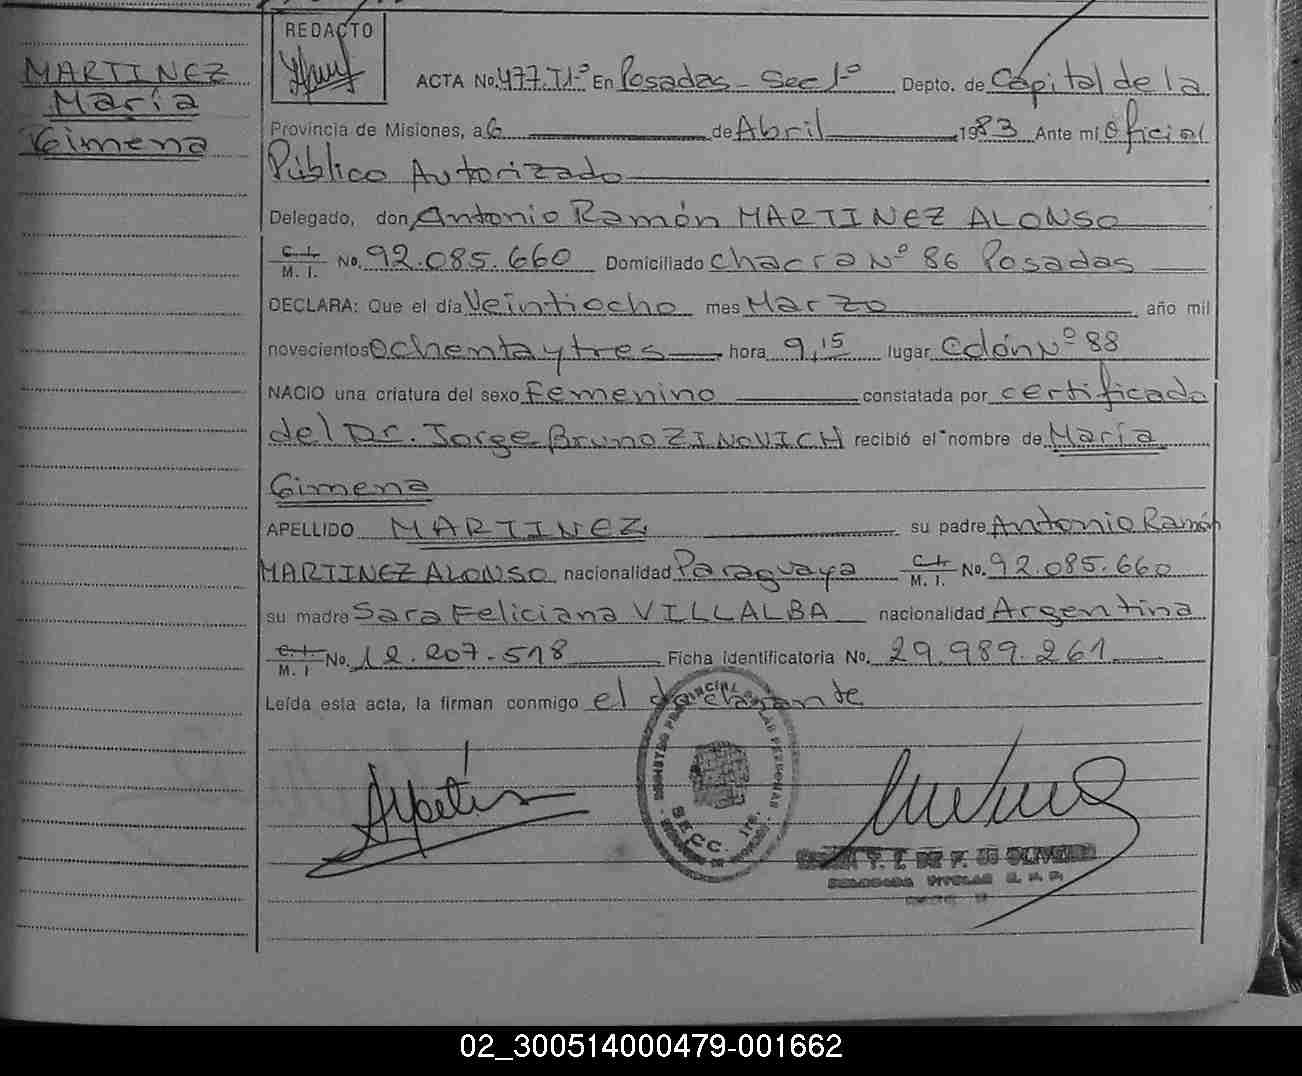 MARTINEZ
María
Gimena
REDACTO
ACTA No. 477.T1º En Posadas - Sec 1º Depto. de Capital de la
Provincia de Misiones, a 6 de Abril 1983 Ante mi Oficial
Público Autorizado
Delegado, don Antonio Ramón MARTINEZ ALONSO
C. I.
M. I. No. 92.085.660 Domiciliado Chacra Nº 86 Posadas
DECLARA: Que el día Veintiocho mes Marzo año mil
novecientos Ochenta y tres hora 9,15 lugar Colón Nº 88
NACIO una criatura del sexo Femenino constatada por certificado
del Dr. Jorge Bruno ZINOVICH recibió el nombre de María
Gimena
APELLIDO MARTINEZ su padre Antonio Ramón
MARTINEZ ALONSO nacionalidad Paraguaya C. I. M. I. No. 92.085.660
su madre Sara Feliciana VILLALBA nacionalidad Argentina
C. I. M. I No. 12.207.518 Ficha identificatoria No. 29.989.261
Leída esta acta, la firman conmigo el declarante
REGISTRO PROVINCIAL DE LAS PERSONAS
SECC. 1ra.
02_300514000479-001662